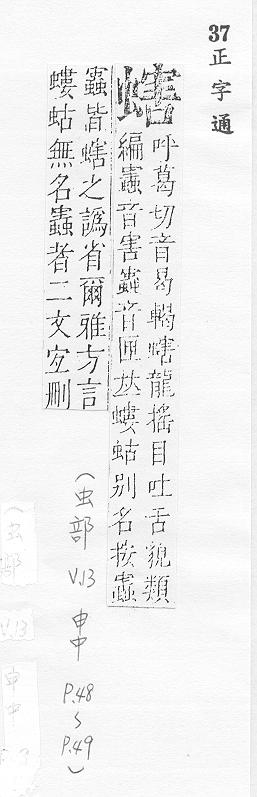 37
正字通
螛
呼葛切音曷蝎螛龍搖目吐舌貌類
編蟲音害蠿音匣𠀤螻蛄別名按蟲
蠿皆螛之譌省爾雅方言
螻蛄無名蟲者二文宜刪
(虫部 V.13 申中 P.48~P.49)
(虫部 V.13 申中